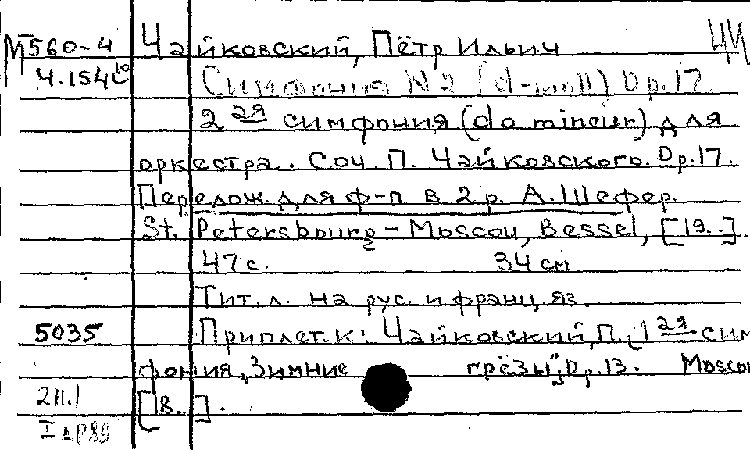 М560-4 Чайковский, Пётр Ильич ЦИ
Ч.154 Симфония N 2 (d-moll) Op.17.
2 ая симфония (do mineur) для
оркестра. Соч. П. Чайковского. Op.17.
Перелож. для ф-п в 2 р. А. Шефер.
St. Petersbourg - Moscou, Bessel, [19..].
47 с. 34 см
Тит. л. на рус. и франц. яз.
5035 Приплет. к: Чайковский, П. 1 ая сим
фония "Зимние грёзы", Op. 13. Moscou
2н.1 [18..].